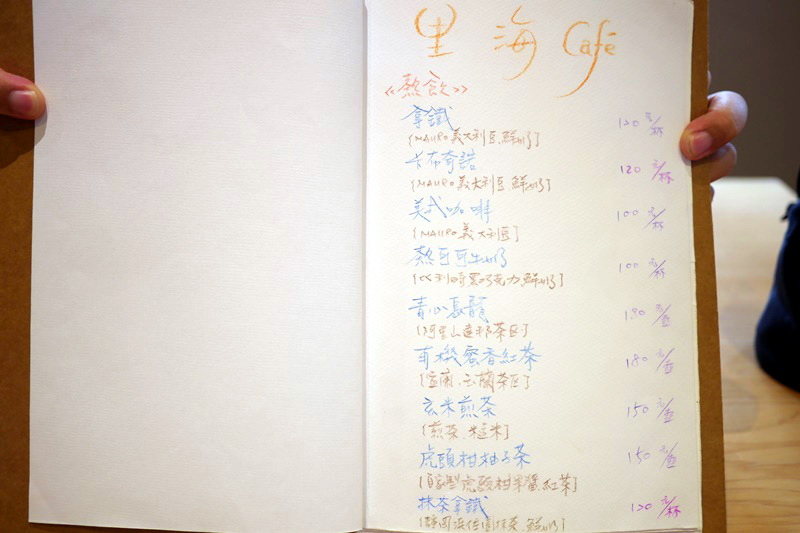 里海 Café
《熱飲》
拿鐵 120元/杯
(MAURO義大利豆.鮮奶)
卡布奇諾 120元/杯
(MAURO義大利豆.鮮奶)
美式咖啡 100元/杯
(MAURO義大利豆)
熱可可牛奶 100元/杯
(比利時黑巧克力.鮮奶)
青心烏龍 180元/壺
(阿里山達邦茶區)
有機蜜香紅茶 180元/壺
(宜蘭.玉蘭茶區)
玄米煎茶 150元/壺
(煎茶.糙米)
虎頭柑柚子茶 150元/壺
(自製虎頭柑果醬.紅茶)
抹茶拿鐵 120元/杯
(靜岡 鮮奶)